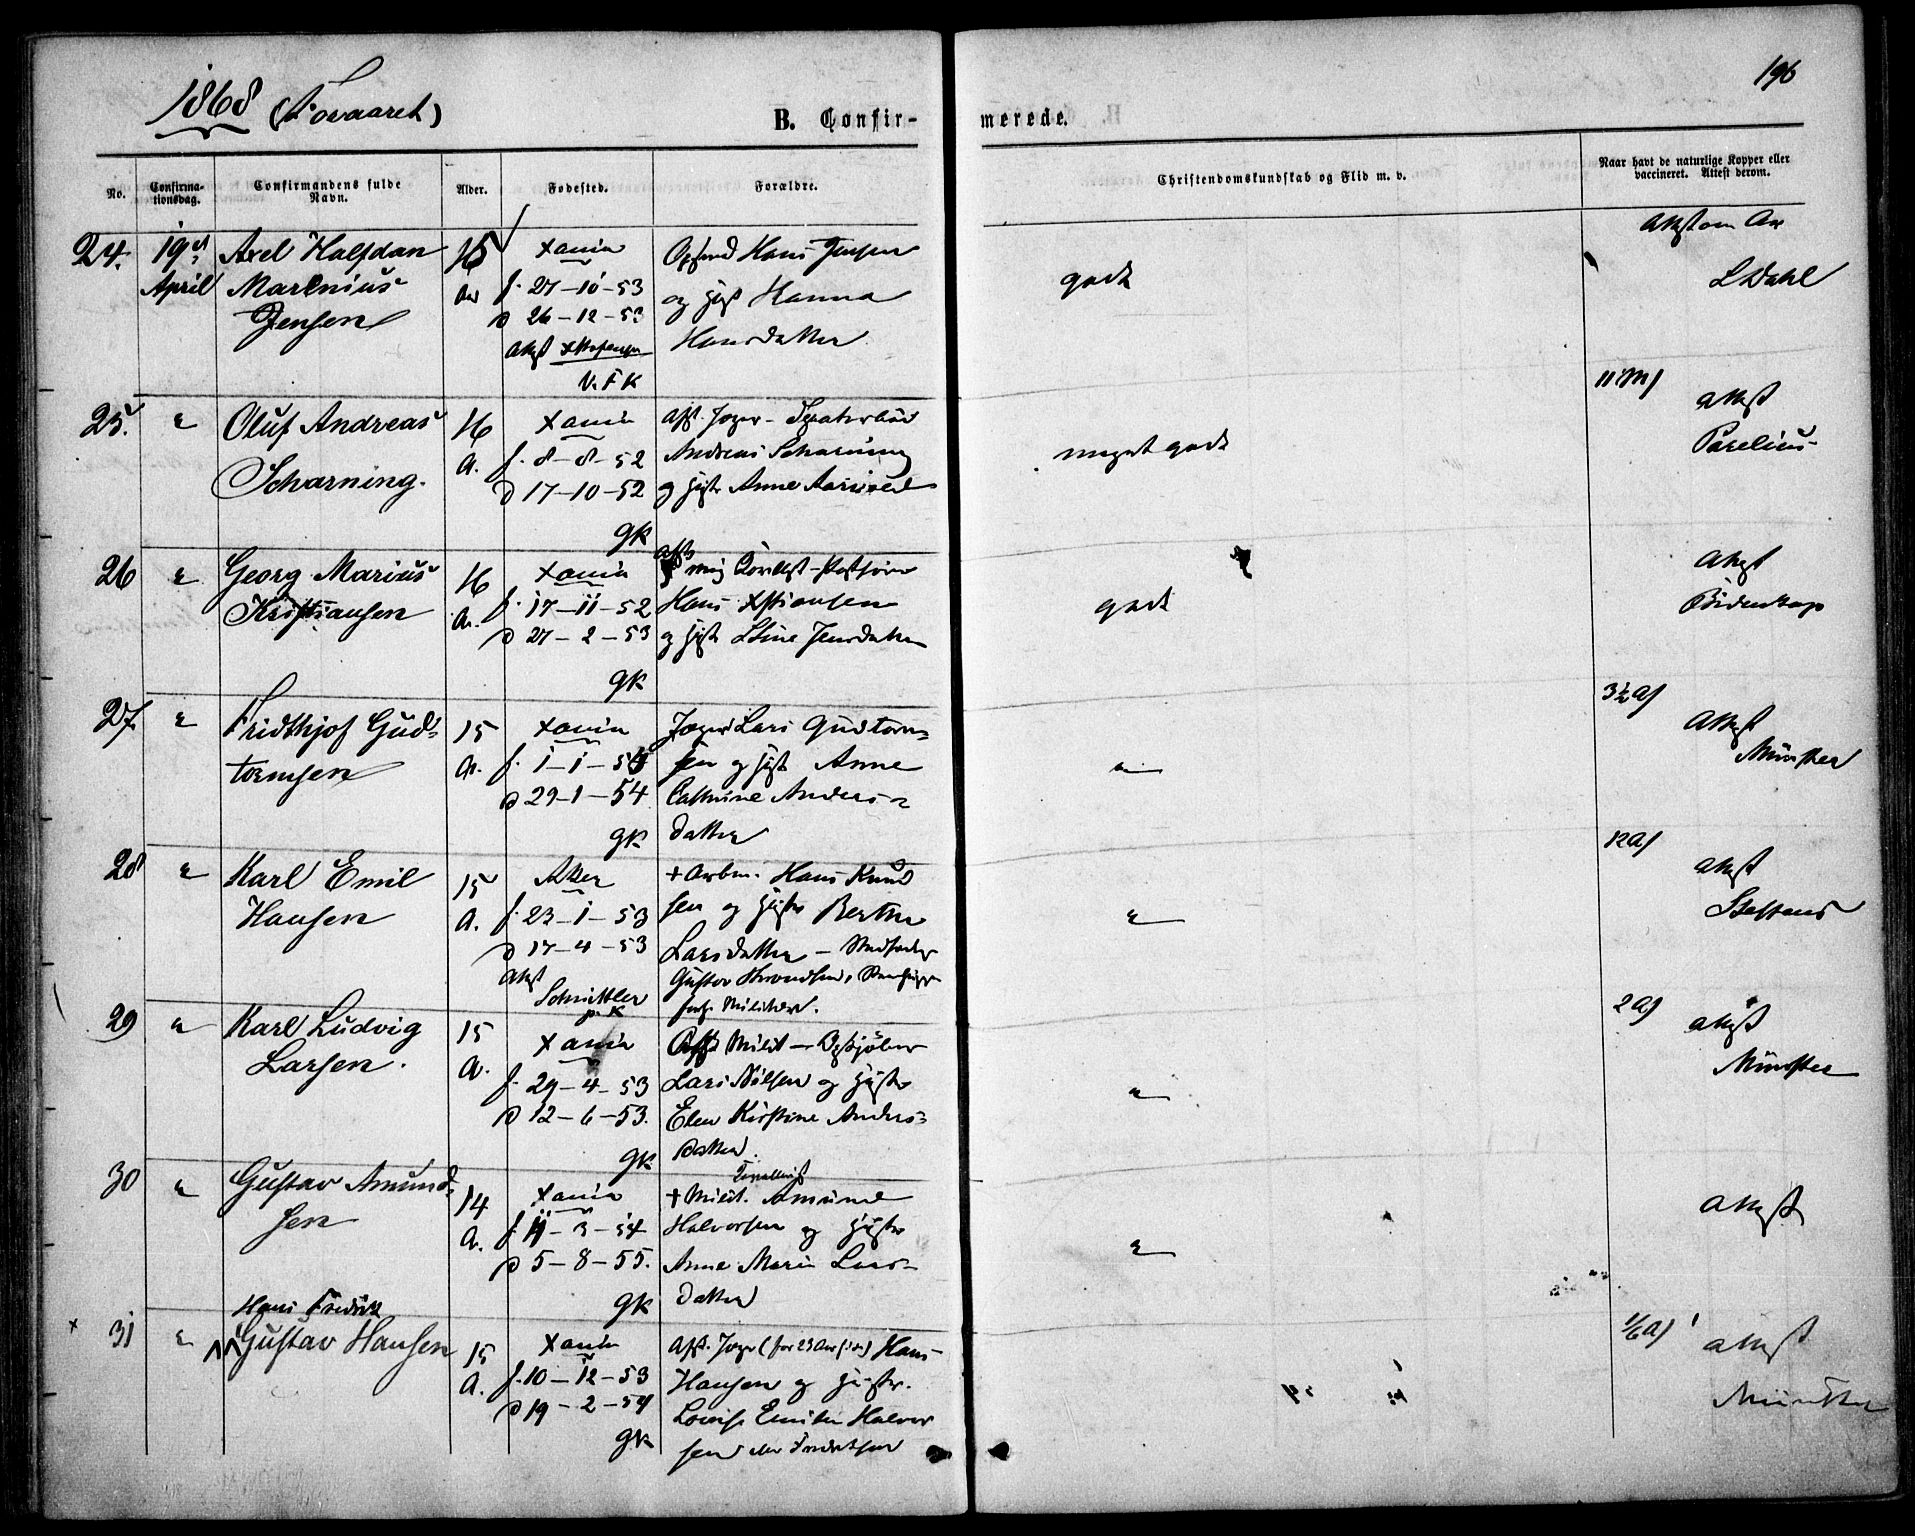 1868 (Foraaret)
196
B. Confir-
merede.
No.
Confirma-
tionsdag.
Confirmandens fulde
Navn.
Alder.
Fødested.
Forældre.
Christendomskundskab og Flid m. v.
Naar havt de naturlige Kopper eller
vaccineret. Attest derom.
24.
19de
April
Axel Halfdan
Marenius
Jensen
15
Aar
Xania
f. 27-10-53
d 26-12-53
Attest
V. F K
Hans Jensen
og Hanna
Hansdatter
godt
Attest om
L Dahl
25.
"
Oluf Andreas
Scharning.
16
A.
Xania
f. 8-8-52
d 17-10-52
gk
afsk. Jæger-
Andreas Scharning
og Anne
meget godt
11 M/
Attest
Parelius
26
"
Georg Marius
Kristiansen
16
A.
Xania
f. 17-11-52
d 27-2-53
gk
Hans Xstiansen
og Stine Jensdatter
godt
Attest
Bidenkap
27.
"
Fridthjof Gud-
tormsen
15
A.
Xania
f. 1-1-54
d 29-1-54
gk
Jæger Lars Gudtorm-
sen og Anne
Cathrine Anders-
datter
"
3½ A/
Attest
Münster
28
"
Karl Emil
Hansen
15
A.
Aker
f. 23-1-53
d 17-4-53
Attest
Schnittler
p. K
+ Arbm. Hans Knud
sen og Berthe
Larsdatter - Stedfader
Gustav
"
12 A/
Attest
Steffens
29
"
Karl Ludvig
Larsen.
15
A.
Xania
f. 29-4-53
d 12-6-53.
gk
Milit-
Lars Nilsen og
Elen Kirstine Anders-
datter.
"
2 A/
Attest
Münster
30
"
Gustav Amund-
sen
14
A.
Xania
f. 11-3-54
d 5-8-55.
gk
+ Milit. Amund
Halvorsen og
Anne Marie Lars-
datter
"
Attest
x 31
"
Hans Fredrik
Gustav Hansen
15
A.
Xania
f. 10-12-53
d 19-2-54
gk
afsk. Jæger (for 23 Aar siden) Hans
Hansen og
Lovise Emilie Halvor
sen eller Fredriksen
1/6 A/
Attest
Münster